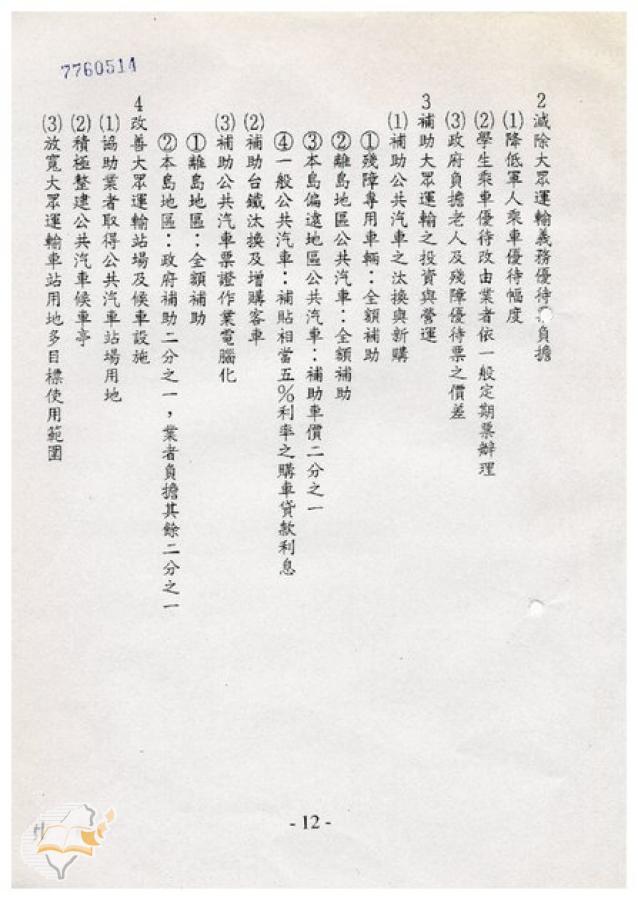 7760514
2減除大眾運輸義務優待負擔
(1)降低軍人乘車優待幅度
(2)學生乘車優待改由業者依一般定期票辦理
(3)政府負擔老人及殘障優待票之價差
3補助大眾運輸之投資與營運
(1)補助公共汽車之汰換與新購
①殘障專用車輛：全額補助
②離島地區公共汽車：全額補助
③本島偏遠地區公共汽車：補助車價二分之一
④一般公共汽車：補貼相當五%利率之購車貸款利息
(2)補助台鐵汰換及增購客車
(3)補助公共汽車票證作業電腦化
①離島地區：全額補助
②本島地區：政府補助二分之一，業者負擔其餘二分之一
4改善大眾運輸站場及候車設施
(1)協助業者取得公共汽車站場用地
(2)積極整建公共汽車候車亭
(3)放寬大眾運輸車站用地多目標使用範圍
- 12 -